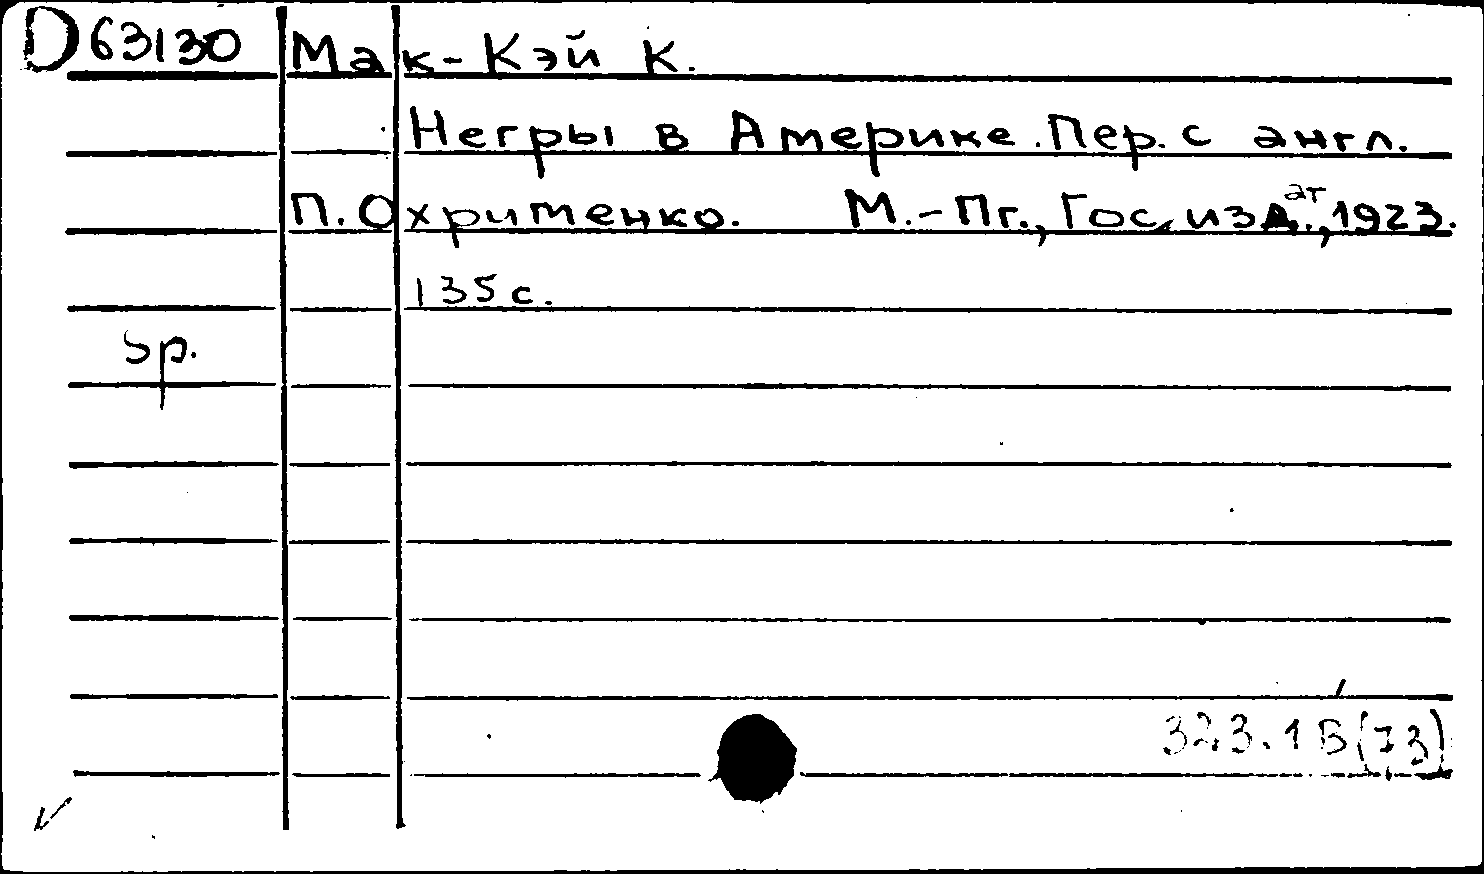 D 63130 Мак-Кэй К.
Негры в Америке. Пер. с англ.
П. Охрименко. М.-Пг., Гос. издат., 1923.
135 с.
эр.
323.1 В(73)